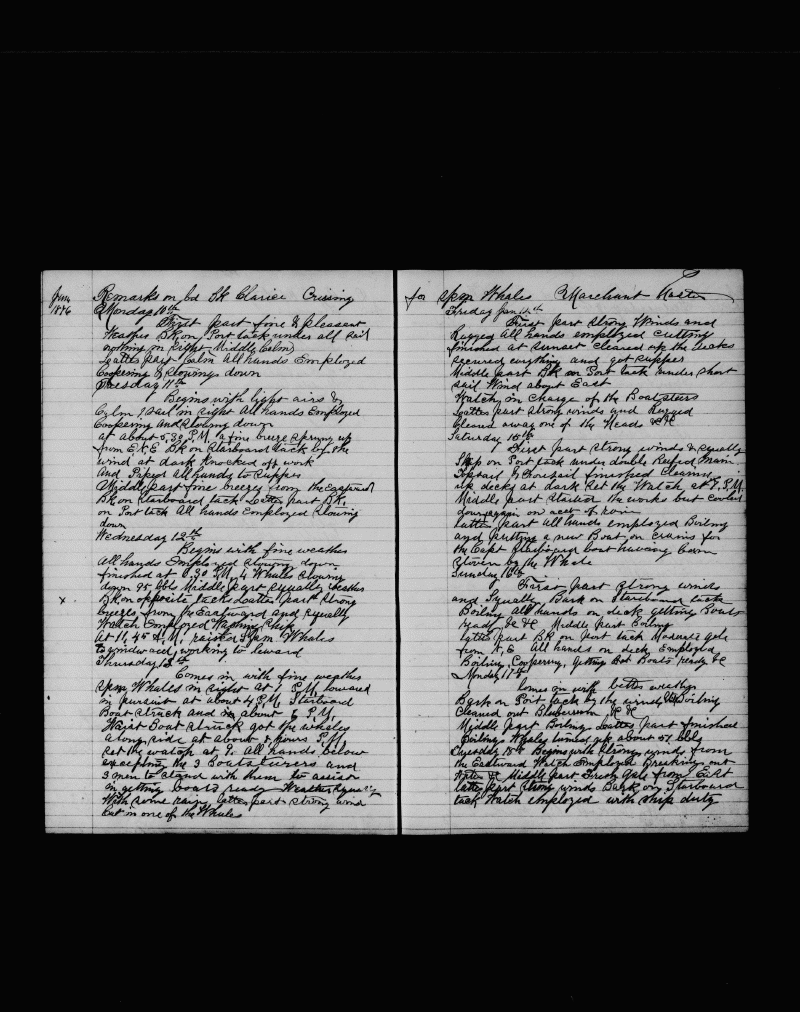 Jan
1876
Remarks on bd Bk Clarice Cruising
Monday 10th
First part fine & pleasant
Weather Bk on Port tack under all sail
nothing in sight Middle Calm
Latter part Calm all hands Employed
Coopering & Stowing down
Tuesday 11th
Begins with light airs &
Calm 1 Sail in sight All hands Employed
Coopering and Stowing down
at about 5.30 P.M. a fine breeze sprung up
from E.N.E Bk on Starboard tack by the
wind at dark Knocked off work
And Piped All hands to Supper
Middle part fine breeze from the Eastward
Bk on Starboard tack Latter part Bk,
on Port tack All hands Employed Stowing
down
Wednesday 12th
Begins with fine weather
All hands Employed Stowing down
finished at 5.30 P.M. 4 Whales Stowing
down 95 bbls Middle part squally weather
x Bk on opposite tacks Latter part Strong
breeze from the Eastward and squally
Watch Employed Washing Ship
At 11,45 A.M. raised Spm Whales
to windward, working to leward
Thursday 13th
Comes in with fine weather
Spm Whales in sight at 1 P.M. lowered
in pursuit at about 4 P.M. Starboard
Boat struck and in about 5 P.M.
Waist Boat struck got the whales
along side at about 7 hours P.M.
Set the watch at 9. All hands below
excepting the 3 Boatsteerers and
3 men to stand with them to assist
in getting boats ready Weather Squally
With some rain, latter part strong wind
Cut in one of the Whales
for Spm Whales Marchant Master
Friday Jan 14th
First part Strong Winds and
Rugged All hands employed cutting
finished at Sunset Cleared up the decks
secured everything and got supper
Middle part Bk on Port tack under short
sail Wind about East
Watch, in Charge of the Boatsteers
Latter part strong winds and Rugged
cleared away one of the Heads &c
Saturday 15th
First part strong winds & squally
Ship on Port tack under double Reefed Main
Topsail & Foresail finished Clearing
up decks at dark Set the Watch at 7, P.M.
Middle part Started the works but cooled
down again on acct of rain
latter part All hands employed Boiling
and putting a new Boat on Cranes for
the Capt previous boat having been
Stoven by the Whale
Sunday 16th
First part Strong winds
and Squally Bark on Starboard tack
Boiling All hands on deck getting Boats
ready &c &c Middle part Boiling
latter part Bk on Port tack Moderate gale
from N,E All hands on deck Employed
Boiling, Coopering, getting Bow Boats ready &c
Monday 17th
Comes in with better weather
Bark on Port tack by the wind, Boiling
Cleaned out Blubberroom &c &c
Middle part Boiling Latter part finished
Boiling, Whales turned up about 57 bbls
Tuesday 18th Begins with Strong winds from
the Eastward Watch Employed Breaking out
Water &c Middle part Fresh Gale from East
latter part Strong winds Bark on Starboard
tack Watch employed with ship duty